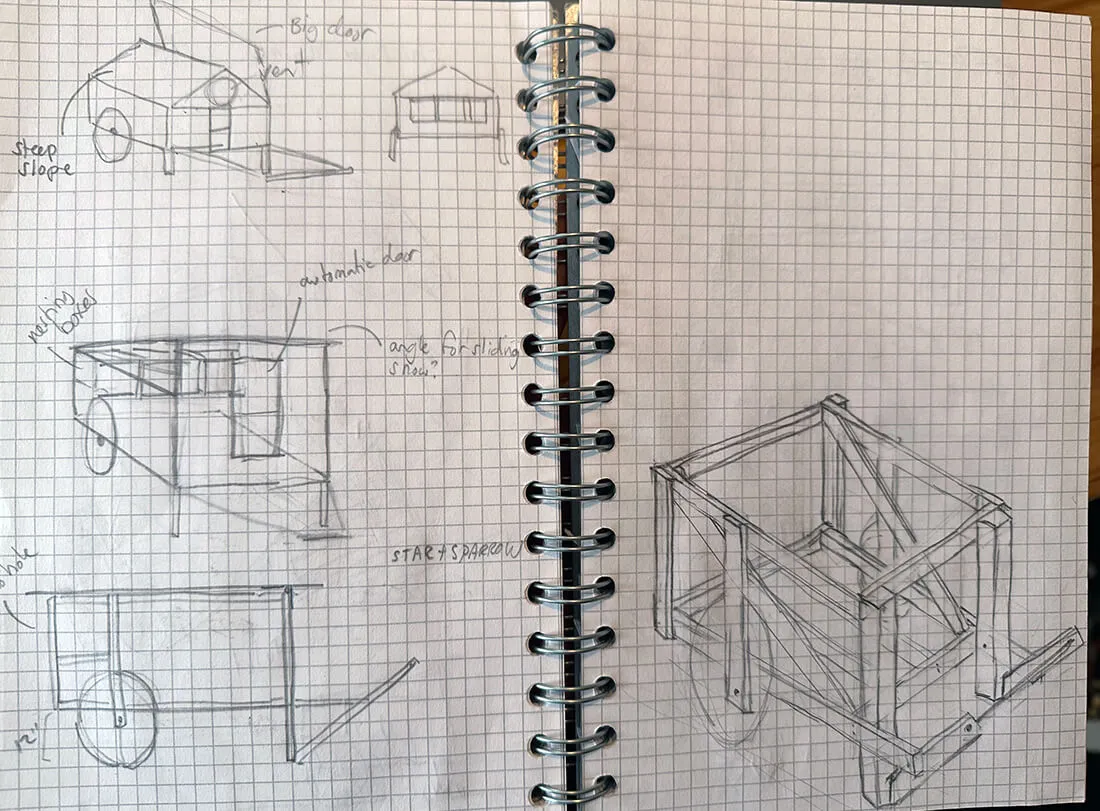 Big door
vent
steep
slope
automatic door
nesting
boxes
angle for sliding
snow?
START SPARROW
hole
12"